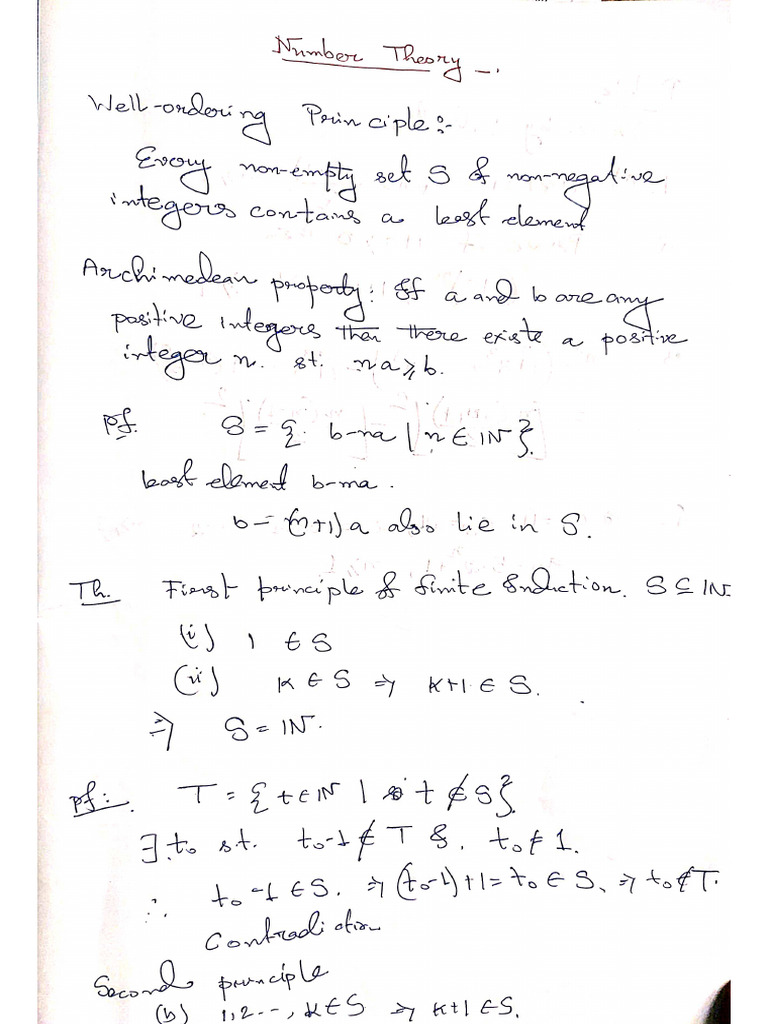 Number Theory -.
Well-ordering Principle:-
Every non-empty set S of non-negative
integers contains a least element
Archimedean property: If a and b are any
positive integers then there exists a positive
integer n. st. na ≥ b.
Pf. S = { b-na | n ∈ IN }.
least element b-ma.
b - (m+1)a also lie in S.
Th. First principle of finite Induction. S ⊆ IN.
(i) 1 ∈ S
(ii) K ∈ S ⇒ K+1 ∈ S.
⇒ S = IN.
pf:. T = { t ∈ IN | t ∉ S }.
∃. t₀ st. t₀-1 ∉ T &. t₀ ≠ 1.
∴ t₀-1 ∈ S. ⇒ (t₀-1)+1 = t₀ ∈ S. ⇒ t₀ ∉ T.
Contradiction
Second principle
(b) 1,2--, K ∈ S ⇒ K+1 ∈ S.